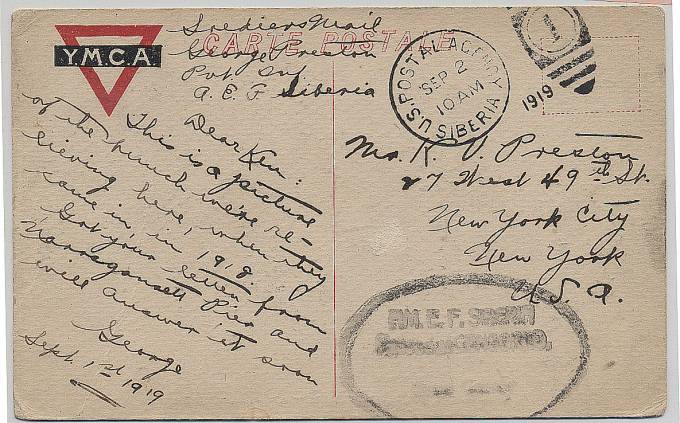 Y.M.C.A
CARTE POSTALE
Soldiers Mail
George Preston
Pvt Inf
A. E. F Siberia
Dear Ken:
This is a picture
of the bunch we're re-
lieving here, when they
came in, in 1918.
Got your letter from
Narragansett Pier and
will answer it soon
George
Sept. 1st 1919
U.S. POSTAL AGENCY
SEP 2
10 AM
1919
SIBERIA
1
Mr. K. V. Preston
27 West 49th St.
New York City
New York
U. S. A.
AM. E. F. SIBERIA